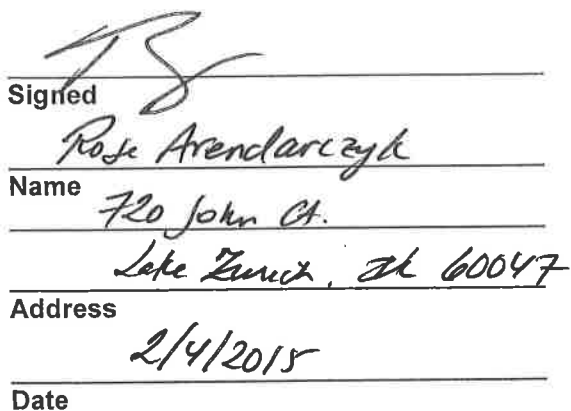 Signed
Rose Arendarczyk
Name
720 John Ct.
Lake Zurich, IL 60047
Address
2/4/2015
Date